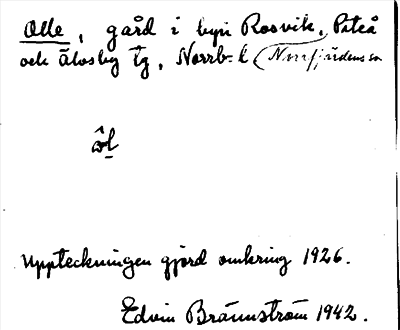 Olle, gård i byn Rosvik, Piteå
och Älvsby tg, Norrb-l (Norrfjärdens sn
Uppteckningen gjord omkring 1926.
Edvin Brännström 1942.